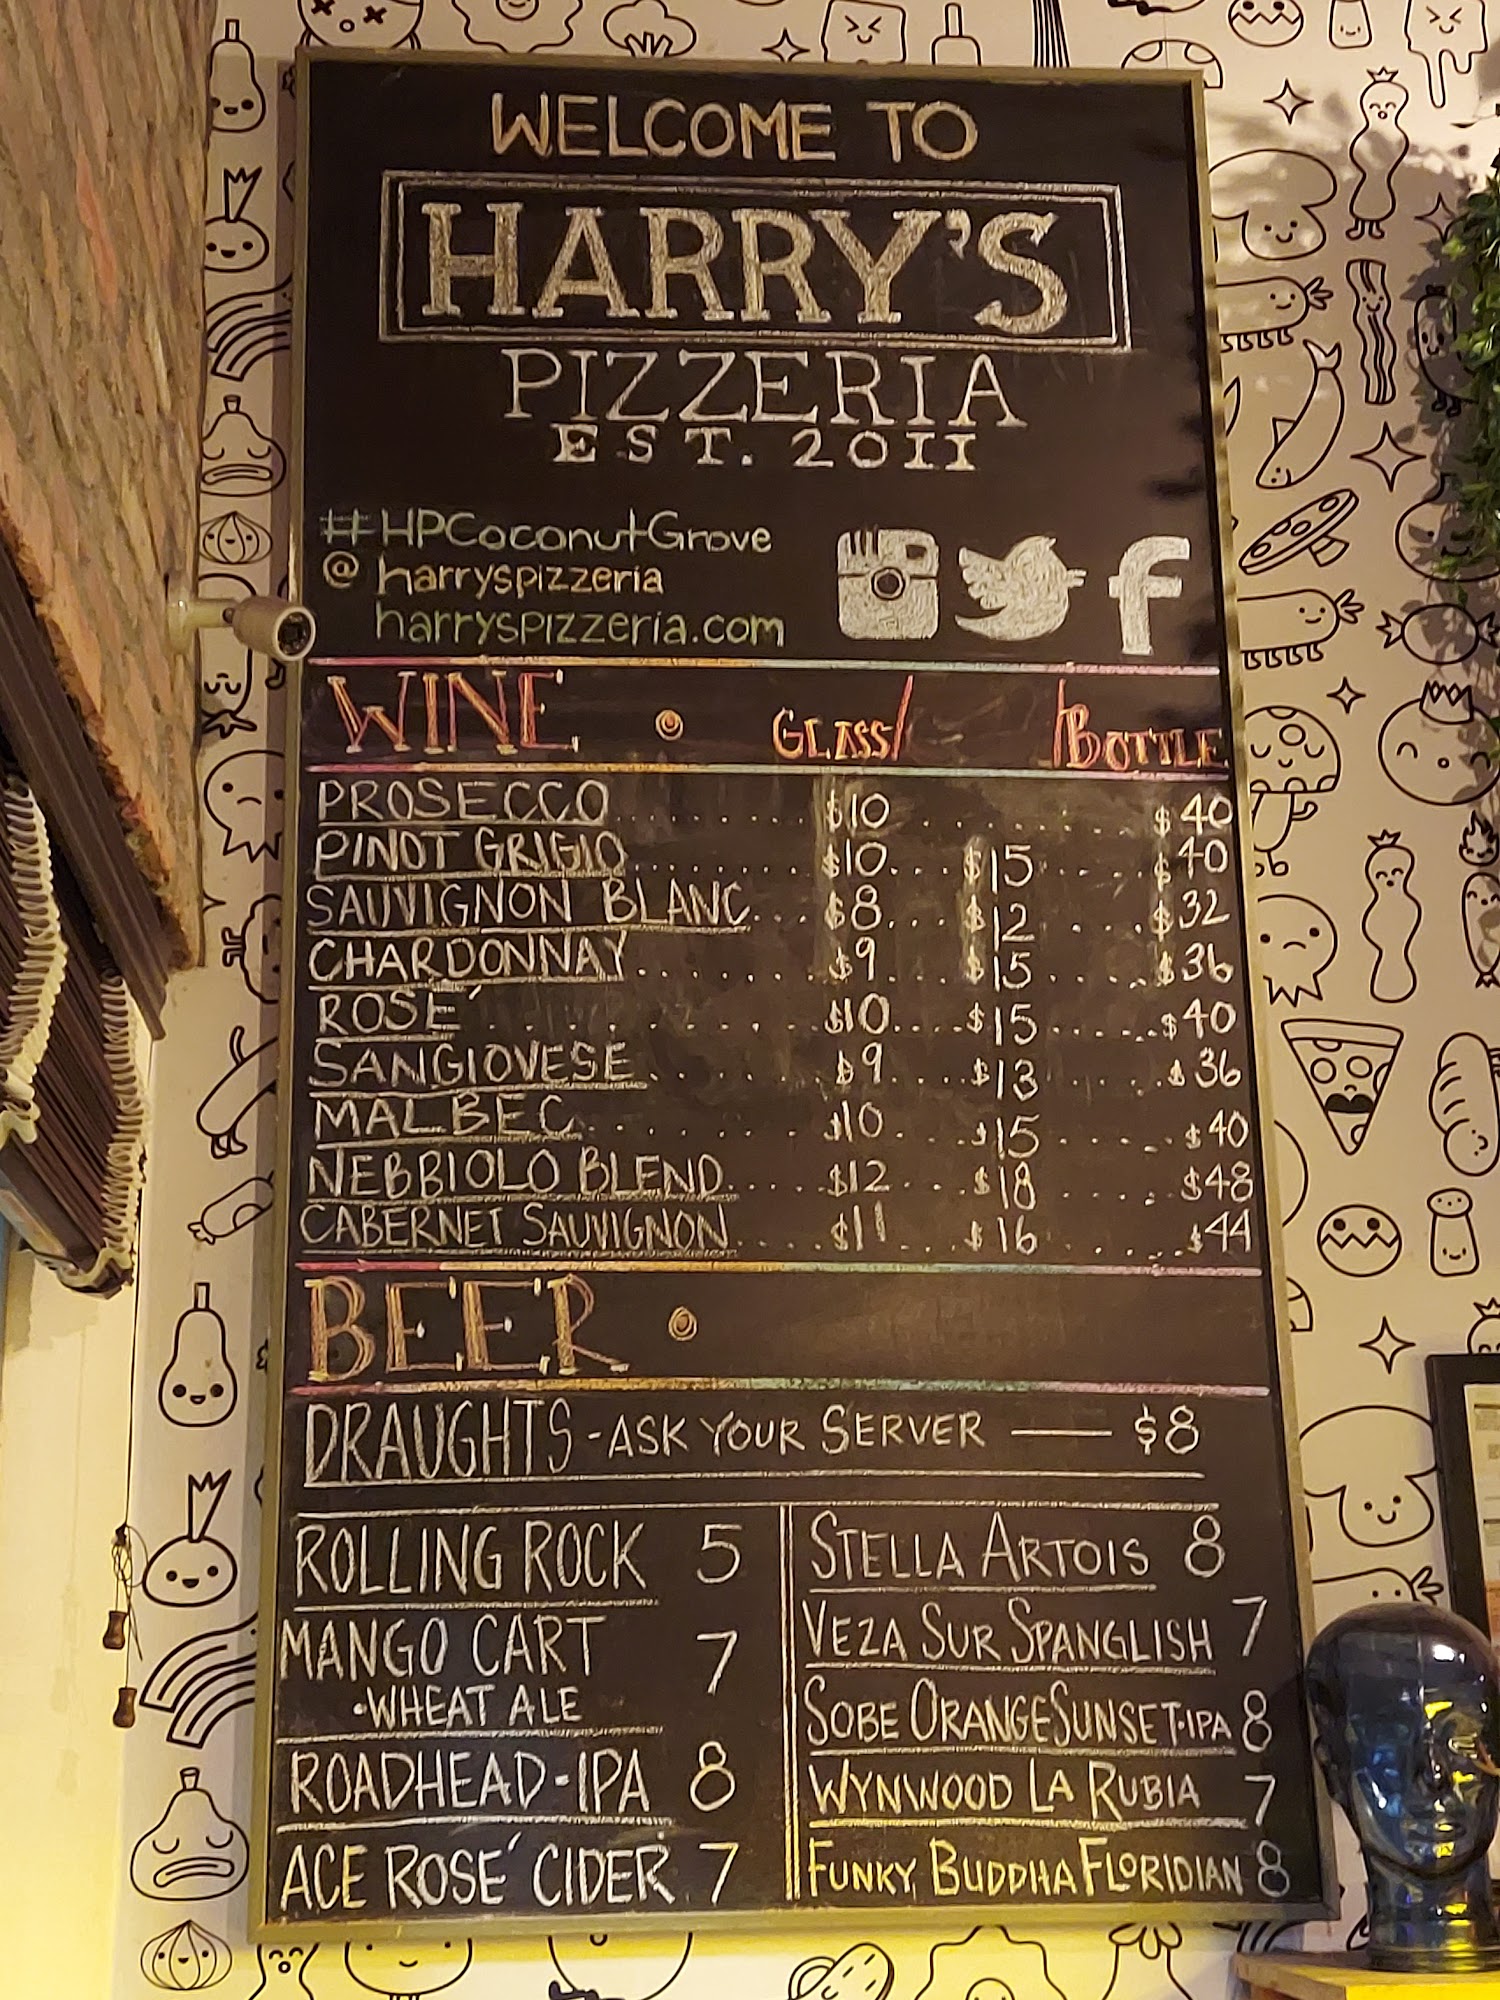 WELCOME TO
HARRY'S
PIZZERIA
EST. 2011
#HPCoconutGrove
@harryspizzeria
harryspizzeria.com
WINE GLASS/ /BOTTLE
PROSECCO.......... $10 .......... $40
PINOT GRIGIO.......... $10... $15..... $40
SAUVIGNON BLANC... $8... $12.... $32
CHARDONNAY....... $9 $15 $36
ROSÉ.......... $10.... $15..... $40
SANGIOVESE..... $9 ... $13 .... $36
MALBEC....... $10... $15..... $40
NEBBIOLO BLEND.... $12... $18 ..... $48
CABERNET SAUVIGNON.... $11... $16 ..... $44
BEER
DRAUGHTS - ASK YOUR SERVER — $8
ROLLING ROCK 5
MANGO CART 7
•WHEAT ALE
ROADHEAD-IPA 8
ACE ROSÉ CIDER 7
STELLA ARTOIS 8
VEZA SUR SPANGLISH 7
SOBE ORANGE SUNSET•IPA 8
WYNWOOD LA RUBIA 7
FUNKY BUDDHA FLORIDIAN 8